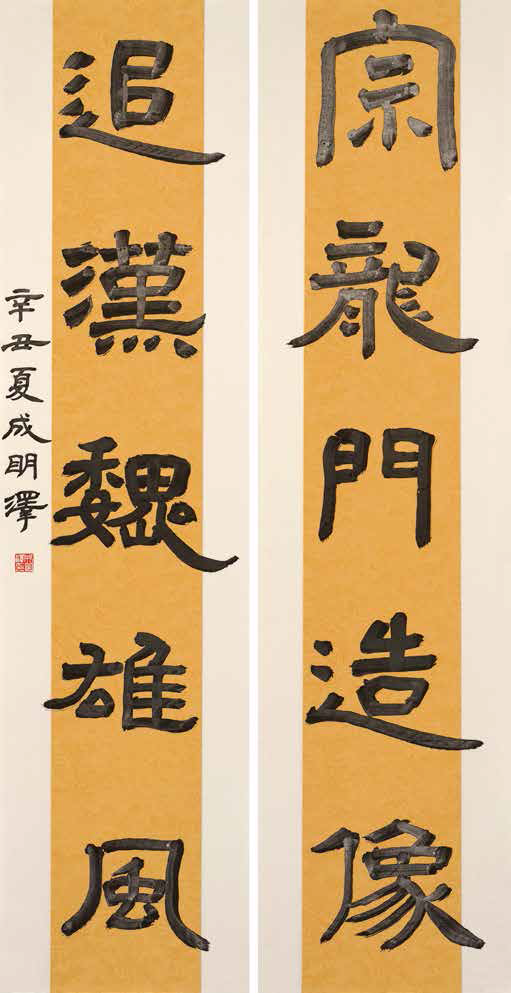 宗龍門造像
追漢魏雄風
辛丑夏成明澤